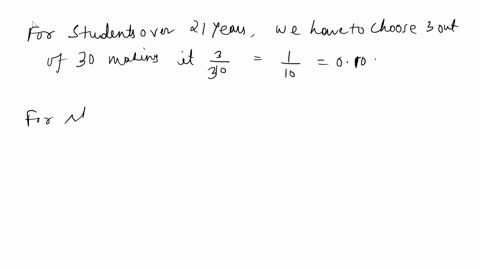 For Students over 21 Years, we have to choose 3 out
of 30 making it 3/30 = 1/10 = 0.10.
For